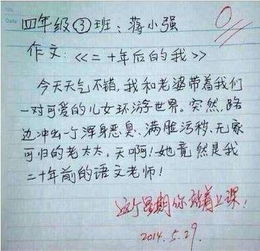 四年级③班：蒋小强
作文：《二十年后的我》
今天天气不错，我和老婆带着我们
一对可爱的儿女环游世界，突然，路
边冲出一个浑身恶臭、满脸污秽、无家
可归的老太太，天啊！她竟然是我
二十年前的语文老师！
这个星期你站着上课！
2014.5.29.